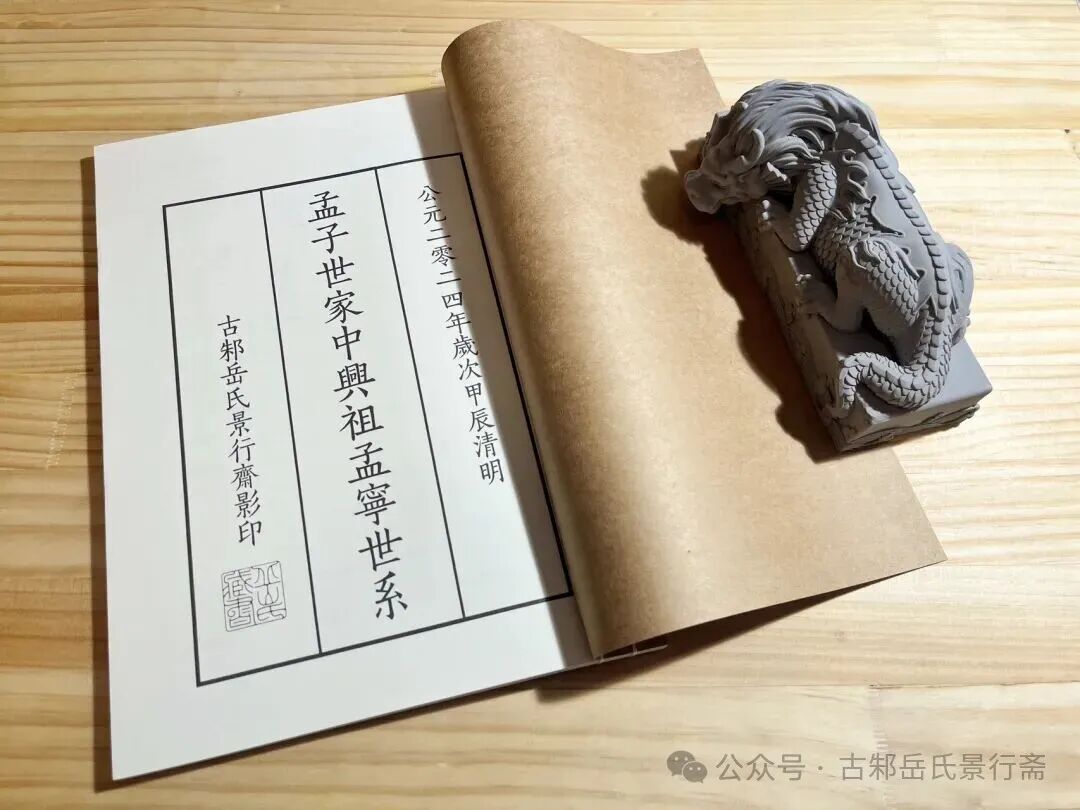 公元二零二四年歲次甲辰清明
孟子世家中興祖孟寧世系
古邾岳氏景行齋影印
公众号 · 古邾岳氏景行斋